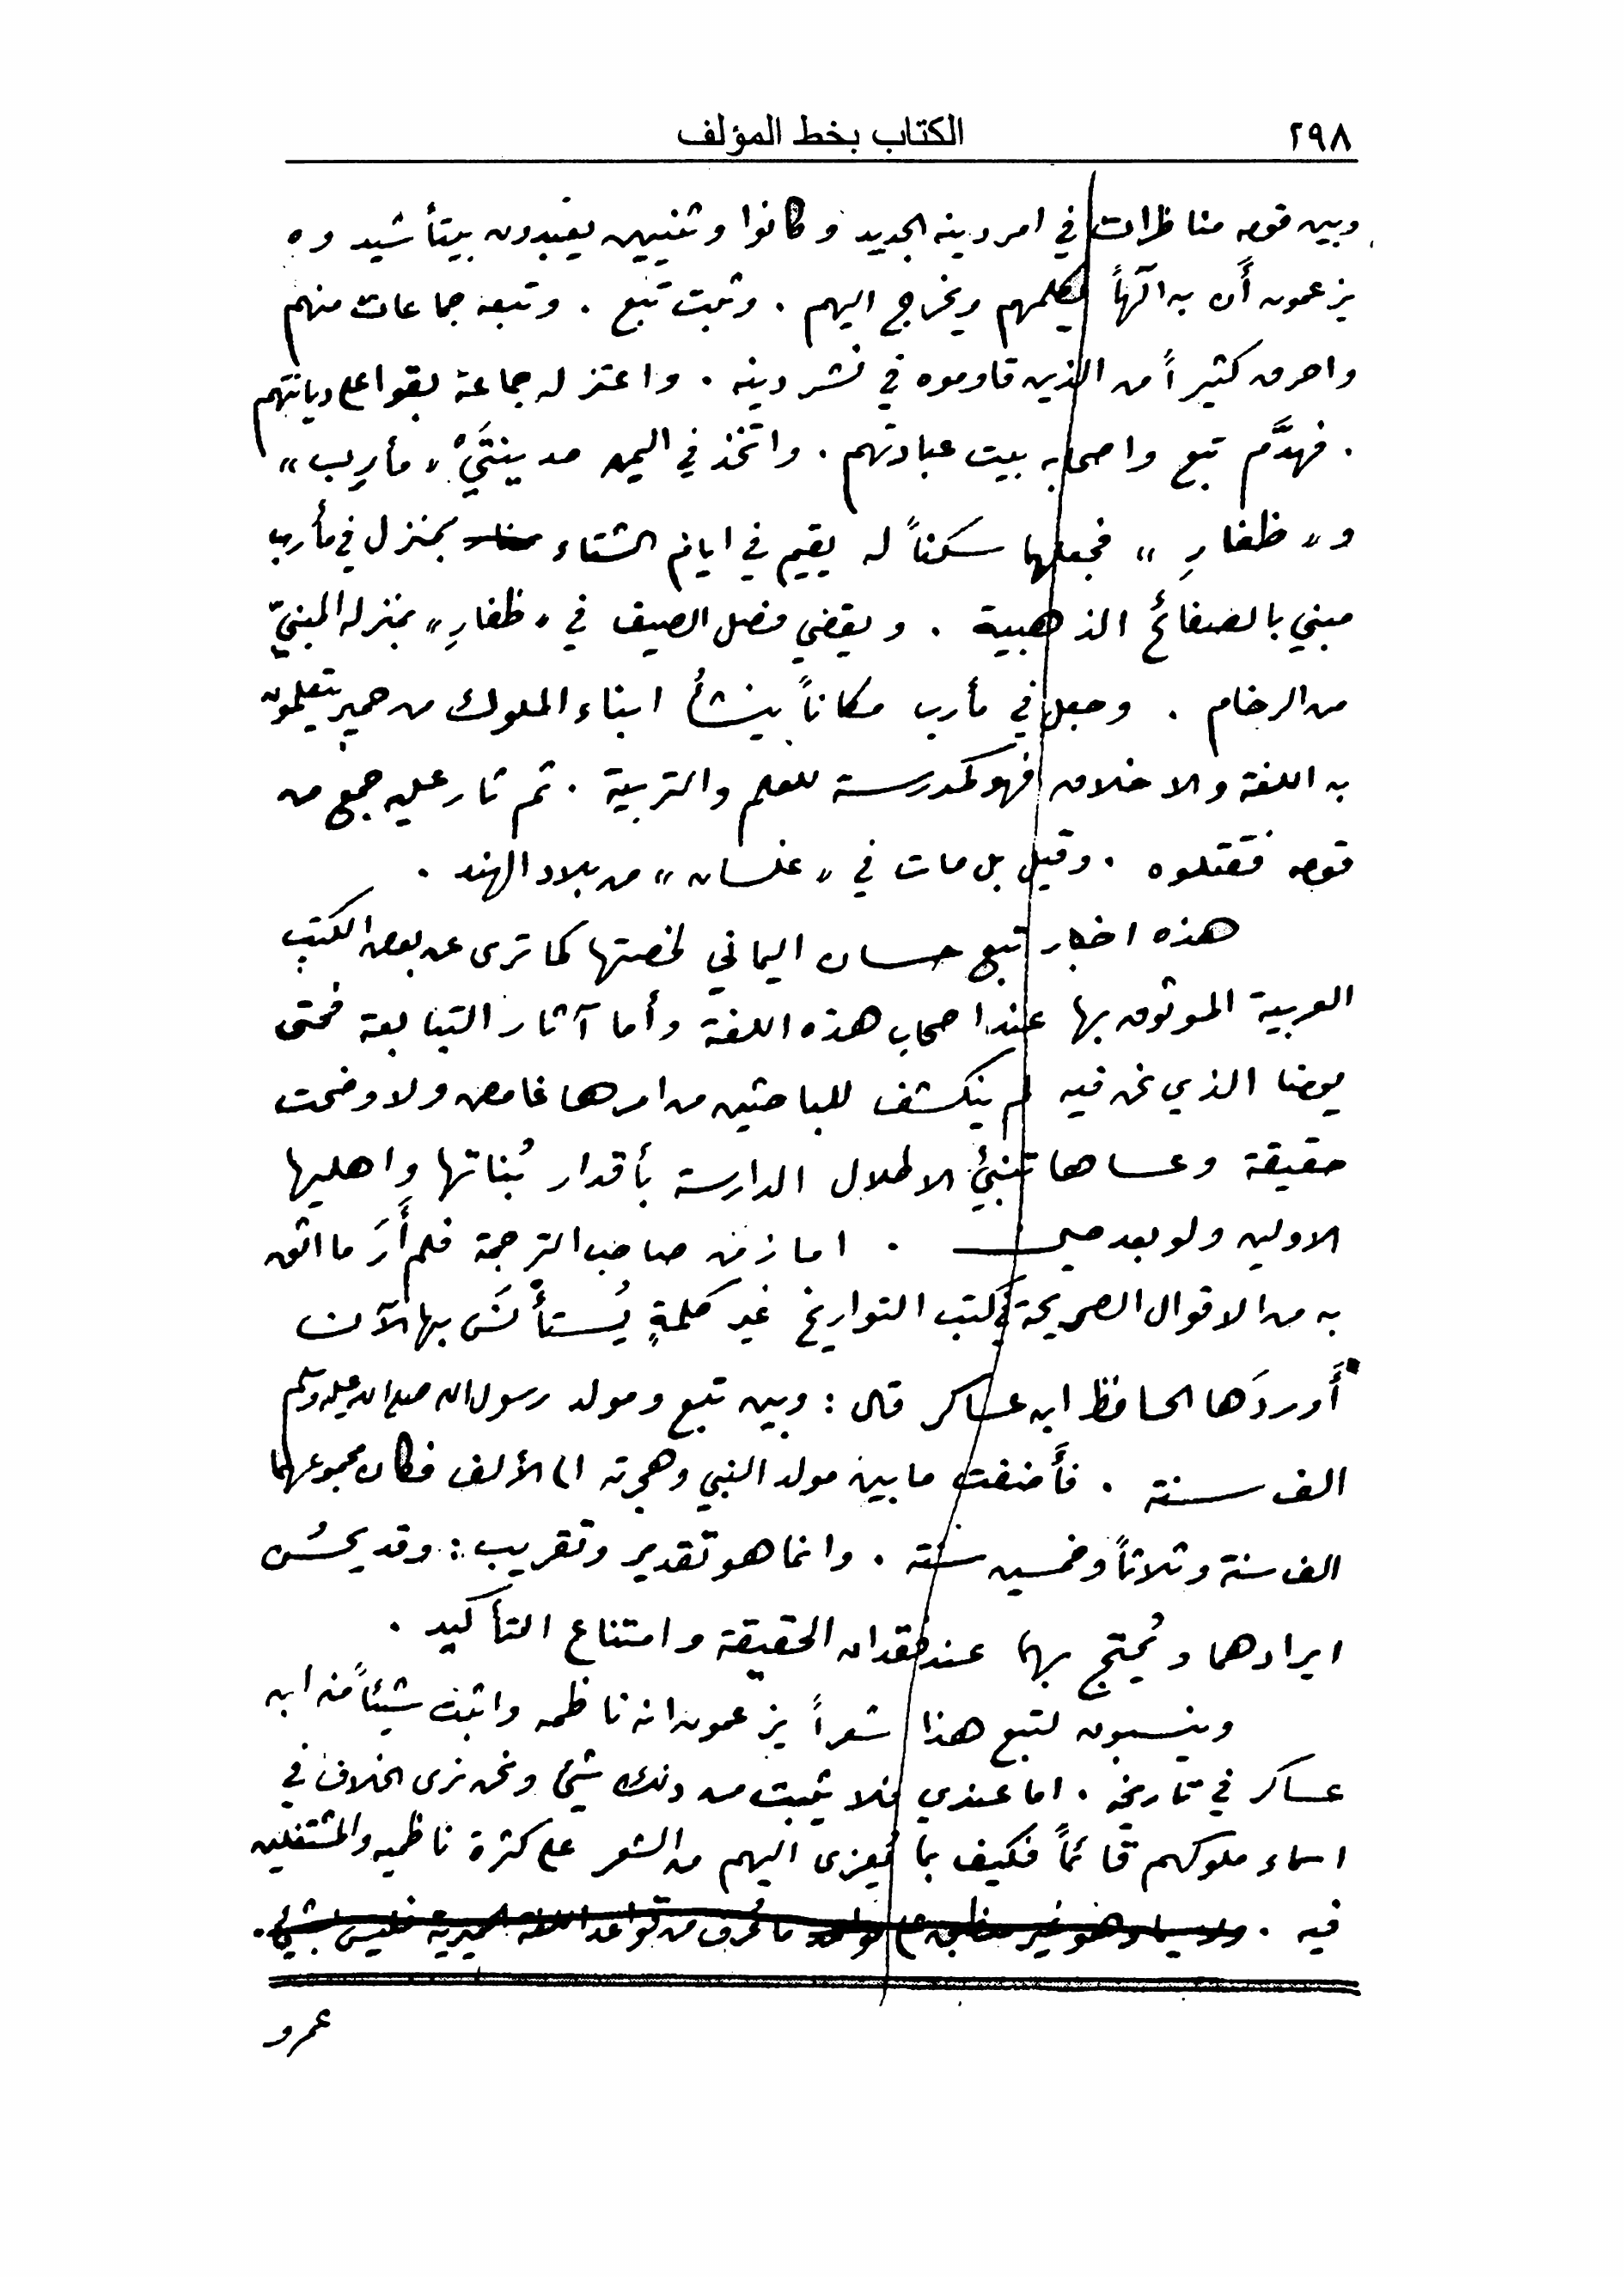 ٢٩٨ الكتاب بخط المؤلف
وبين قومه مناظرات في امر دينه الجديد وكانوا وثنيين يعبدون بيتاً شيدوه
يزعمون أَن به آلهاً يكلمهم ويخرج اليهم . وثبت تبع . وتبعه جماعات منهم
واحرق كثيراً من الذين قاوموه في نشر دينه . واعتزله جماعة بقوا على ديانتهم
. فهدَّم تبع واصحابه بيت عبادتهم . واتخذ في اليمن مدينتَيْ « مأرِب »
و« ظفارِ » فجعلها سكناً له يقيم في ايام الشتاء بمنزل في مأرب
مبني بالصفائح الذهبية . ويقضي فصل الصيف في « ظفارِ » بمنزله المبنيّ
من الرخام . وجعل في مأرب مكاناً ينشأُ ابناء الملوك من حمير يتعلمون
به اللغة والاخلاق فهو كمدرسة للعلم والتربية . ثم ثار عليه جمع من
قومه فقتلوه . وقيل بل مات في « غلسان » من بلاد الهند .
هذه اخبار تبع حسان اليماني لخصتها كما ترى عن بعض الكتب
العربية الموثوق بها عند اصحاب هذه اللغة وأما آثار التبابعة فحتى
يومنا الذي نحن فيه لم ينكشف للباحثين من امرها غامض ولا وضحت
حقيقة وعساها تنبئُ الاطلال الدارسة بأقدار بُناتها واهليها
الاولين ولو بعد حين . اما زمن صاحب الترجمة فلم أَرَ ما اثق
به من الاقوال الصريحة في كتب التواريخ غير كلمةٍ يُستأْنَس بها الآن
أَوردَها الحافظ ابن عساكر قال : وبين تبع ومولد رسول الله صلى الله عليه وسلم
الف سنة . فأَضفت ما بين مولد النبي وهجرته الى الألف فكان مجموعهما
الف سنة وثلاثاً وخمسين سنة . وانما هو تقدير وتقريب : وقد يحسُن
ايرادهما ويُحتج بهما عند فقدان الحقيقة وامتناع التأكيد .
وينسبون لتبع هذا شعراً يزعمون انه ناظمه واثبت شيئاً منه ابن
عساكر في تاريخه . اما عندي فلا يثبت من ذلك شيئ ونحن نرى الخلاف في
اسماء ملوكهم قائماً فكيف بما يُعزى اليهم من الشعر على كثرة ناظميه والمشتغلين
فيه . ولا سيما وهو غير منطبق على ما عُرف من قواعد اللغة الحميرية فليس بشيئ .
عمرو